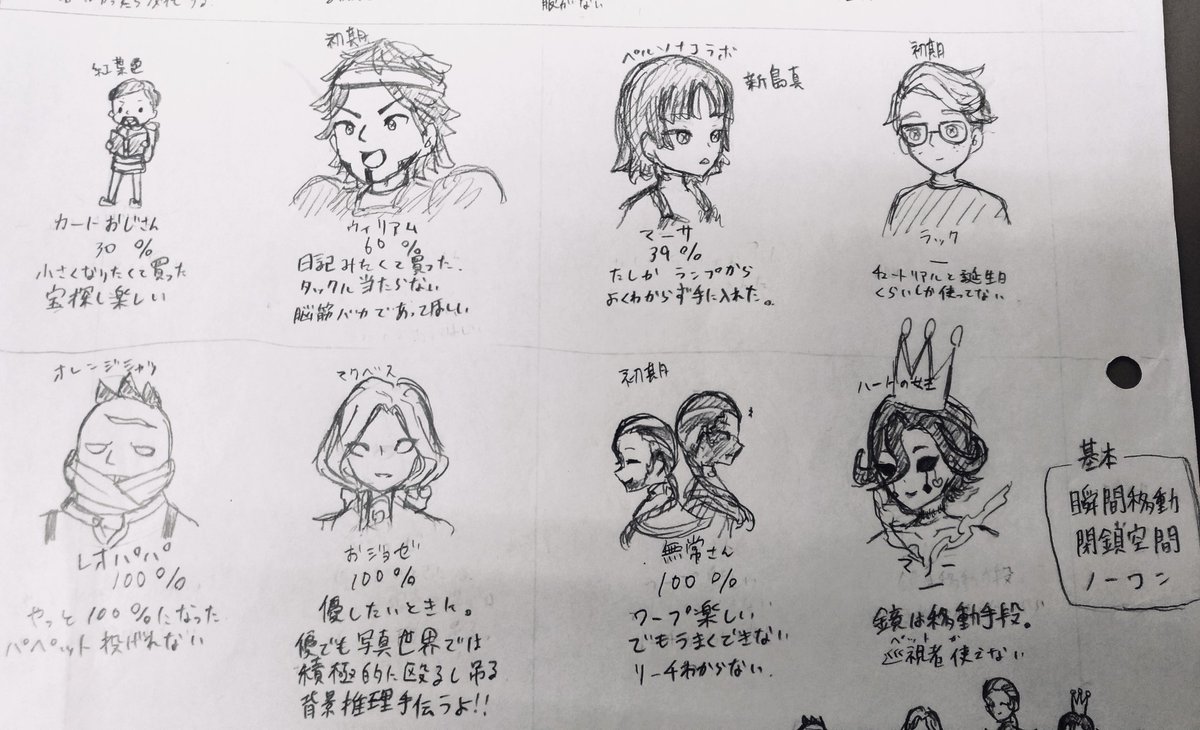 服がない
紅葉色
カートおじさん
30%
小さくなりたくて買った
宝探し楽しい
初期
ウィリアム
60%
日記みたくて買った.
タックル当たらない
脳筋バカであってほしい
ペルソナコラボ
新島真
マーサ
39%
たしか ランプから
よくわからず手に入れた。
初期
ラック
ー
チュートリアルと誕生日
くらいしか使ってない
オレンジシャツ
レオパパ
100%
やっと100%になった
パペット投げれない
マクベス
おジョゼ
100%
優したいときに。
優でも写真世界では
積極的に殴るし吊る
背景推理手伝うよ!!
初期
無常さん
100%
ワープ楽しい
でもうまくできない
リーチわからない.
ハートの女王
マリー
ー
鏡は移動手段。
ペットが
巡視者使えない
基本
瞬間移動
閉鎖空間
ノーワン